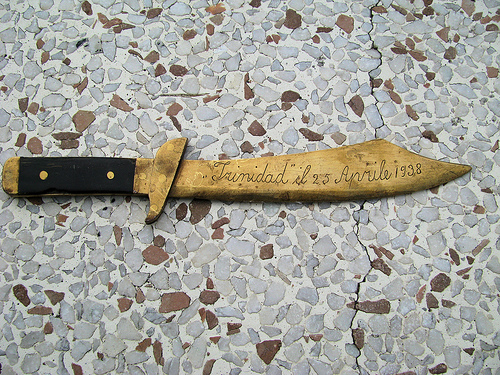 "Trinidad" il 25 Aprile 1938